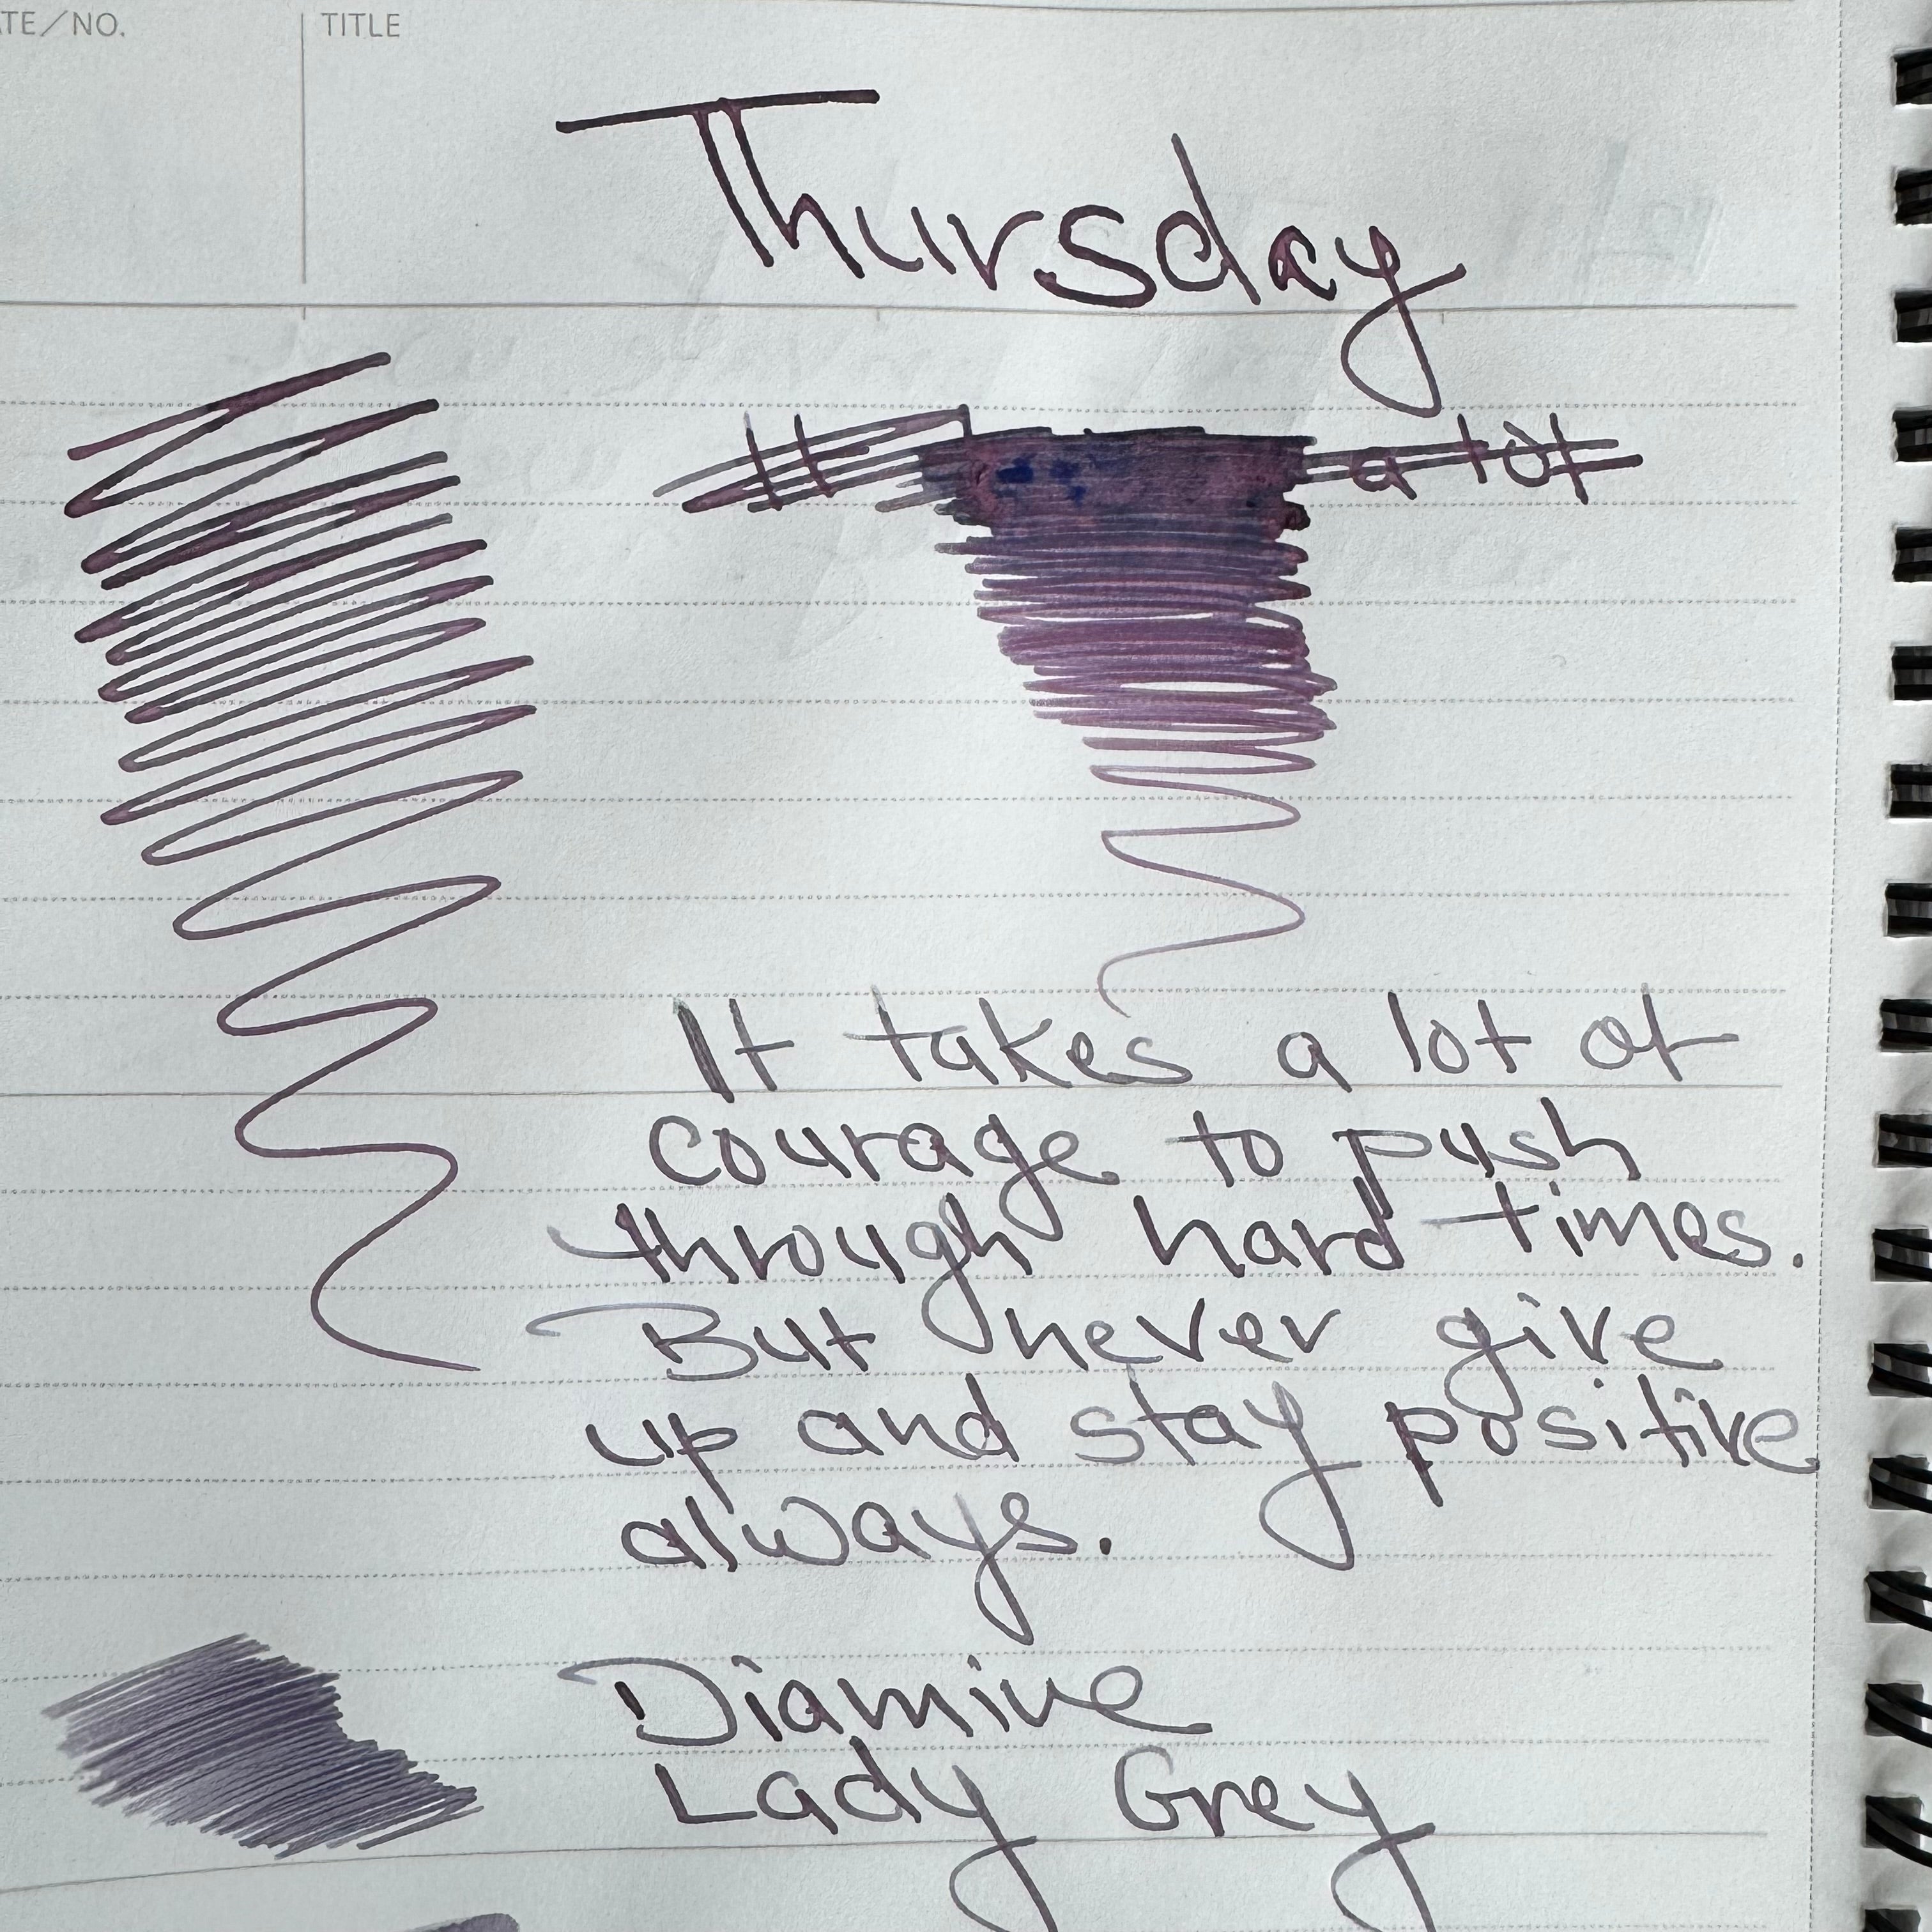 TE/NO.
TITLE
Thursday
a lot
It takes a lot of
courage to push
through hard times.
But never give
up and stay positive
always.
Diamine
Lady Grey